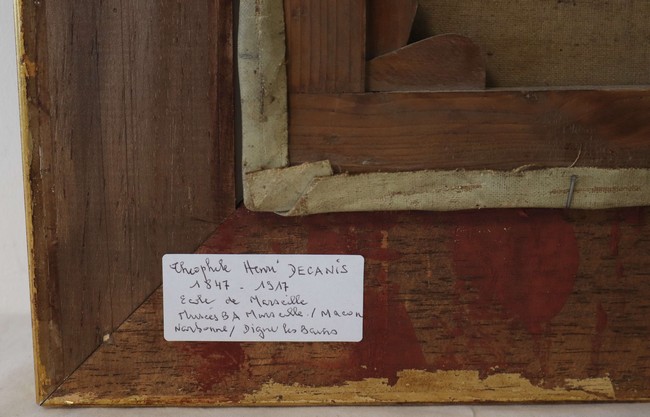 Théophile Henri DECANIS
1847 - 1917
Ecole de Marseille
Musées BA Marseille / Macon
Narbonne / Digne les Bains